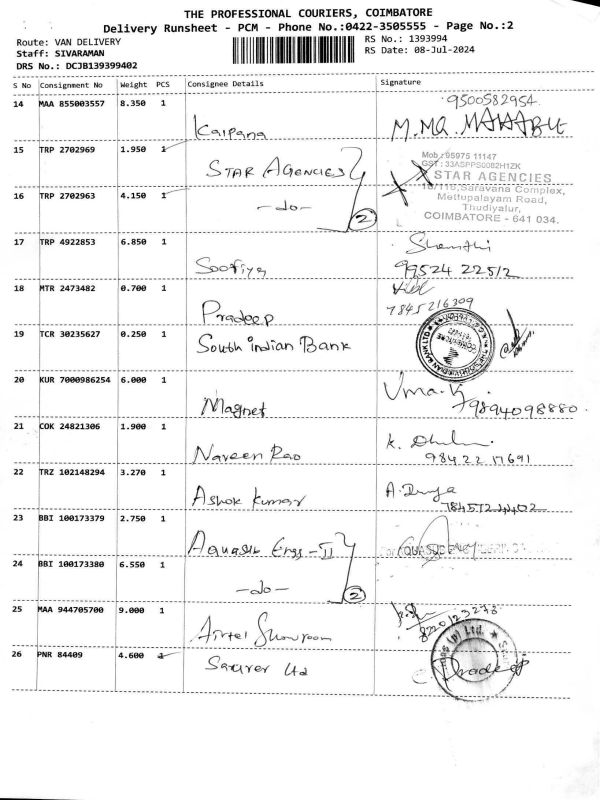 THE PROFESSIONAL COURIERS, COIMBATORE
Delivery Runsheet - PCM - Phone No.:0422-3505555 - Page No.:2
Route: VAN DELIVERY
RS No.: 1393994
Staff: SIVARAMAN
RS Date: 08-Jul-2024
DRS No.: DCJB139399402
S No Consignment No Weight PCS Consignee Details Signature
14 MAA 855003557 8.350 1
9500582954
Kalpana
15 TRP 2702969 1.950 1
STAR AGENCIES
Mob: 95975 11147
GST: 33ASPPS0082H1ZK
STAR AGENCIES
16 TRP 2702963 4.150 1
-do- 2
Saravana Complex,
Mettupalayam Road,
Thudiyalur,
COIMBATORE - 641 034.
17 TRP 4922853 6.850 1
Soofiya
99524 22512
18 MTR 2473482 0.700 1
Pradeep
7845216309
19 TCR 30235627 0.250 1
South indian Bank
20 KUR 7000986254 6.000 1
Magnet
Uma.
9894098880.
21 COK 24821306 1.900 1
Naveen Rao
98422 17691
22 TRZ 102148294 3.270 1
Ashok Kumar
23 BBI 100173379 2.750 1
24 BBI 100173380 6.550 1
-do- 2
25 MAA 944705700 9.000 1
Airtel Showroom
26 PNR 84409 4.600 1
Saurer Ltd
(p) Ltd.
Pradeep